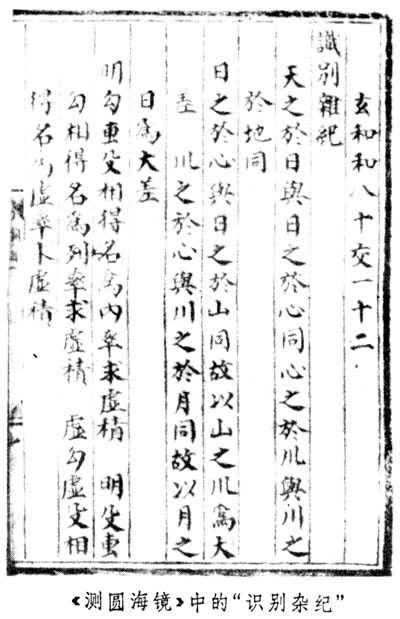 玄和和八十交一十二
識别雜紀
天之於日與日之於心同心之於川與川之
於地同
日之於心與日之於山同故以山之川為大
差 川之於心與川之於月同故以月之
日為大差
明勾叀殳相得名為内率求虚積 明殳叀
勾相得名為列率求虚積 虚勾虚殳相
得名為虚率卜虚積
《测圆海镜》中的“识别杂纪”